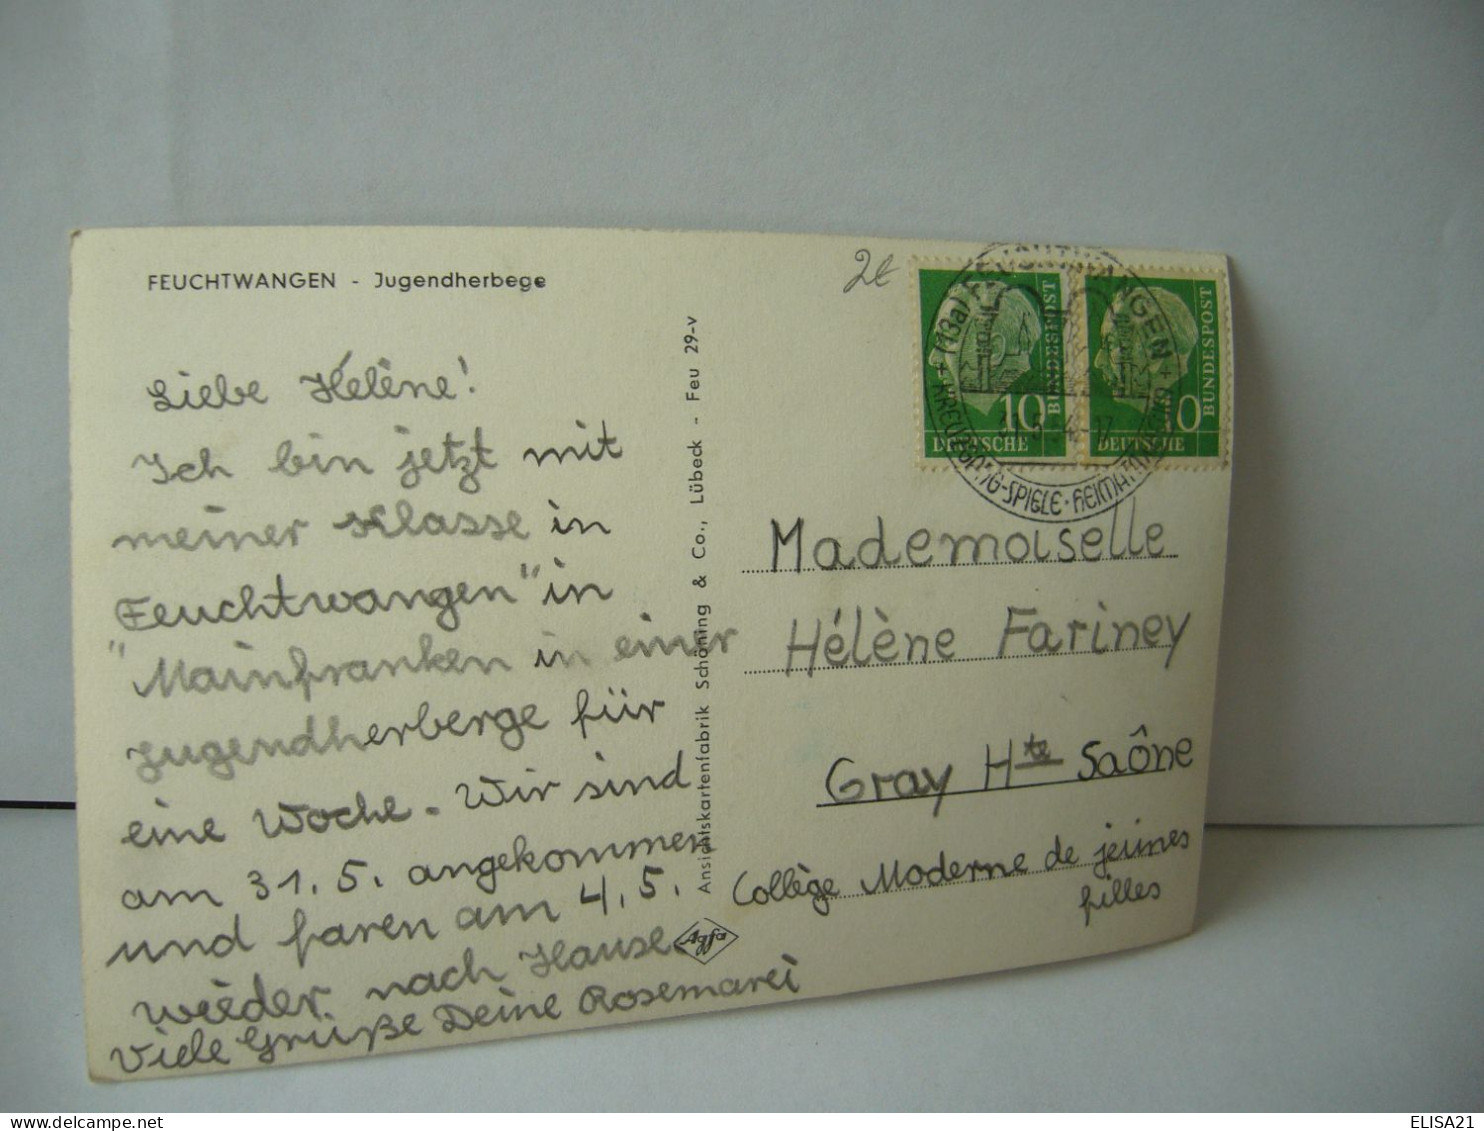 FEUCHTWANGEN - Jugendherbege
Liebe Hélène!
Ich bin jetzt mit
meiner Klasse in
Feuchtwangen" in
"Mainfranken in einer
Jugendherberge für
eine Woche. Wir sind
am 31.5. angekommen
und faren am 4.5.
wieder nach Hause
Viele Grüße Deine Rosemarei
Ansichtskartenfabrik Schöning & Co., Lübeck - Feu 29-v
Agfa
2€
FEUCHTWANGEN
+ (13a)
KREUZGANG-SPIELE · HEIMATMUSEUM +
10
DEUTSCHE
BUNDESPOST
10
DEUTSCHE
BUNDESPOST
Mademoiselle
Hélène Fariney
Gray Hte Saône
Collège Moderne de jeunes
filles
ELISA21